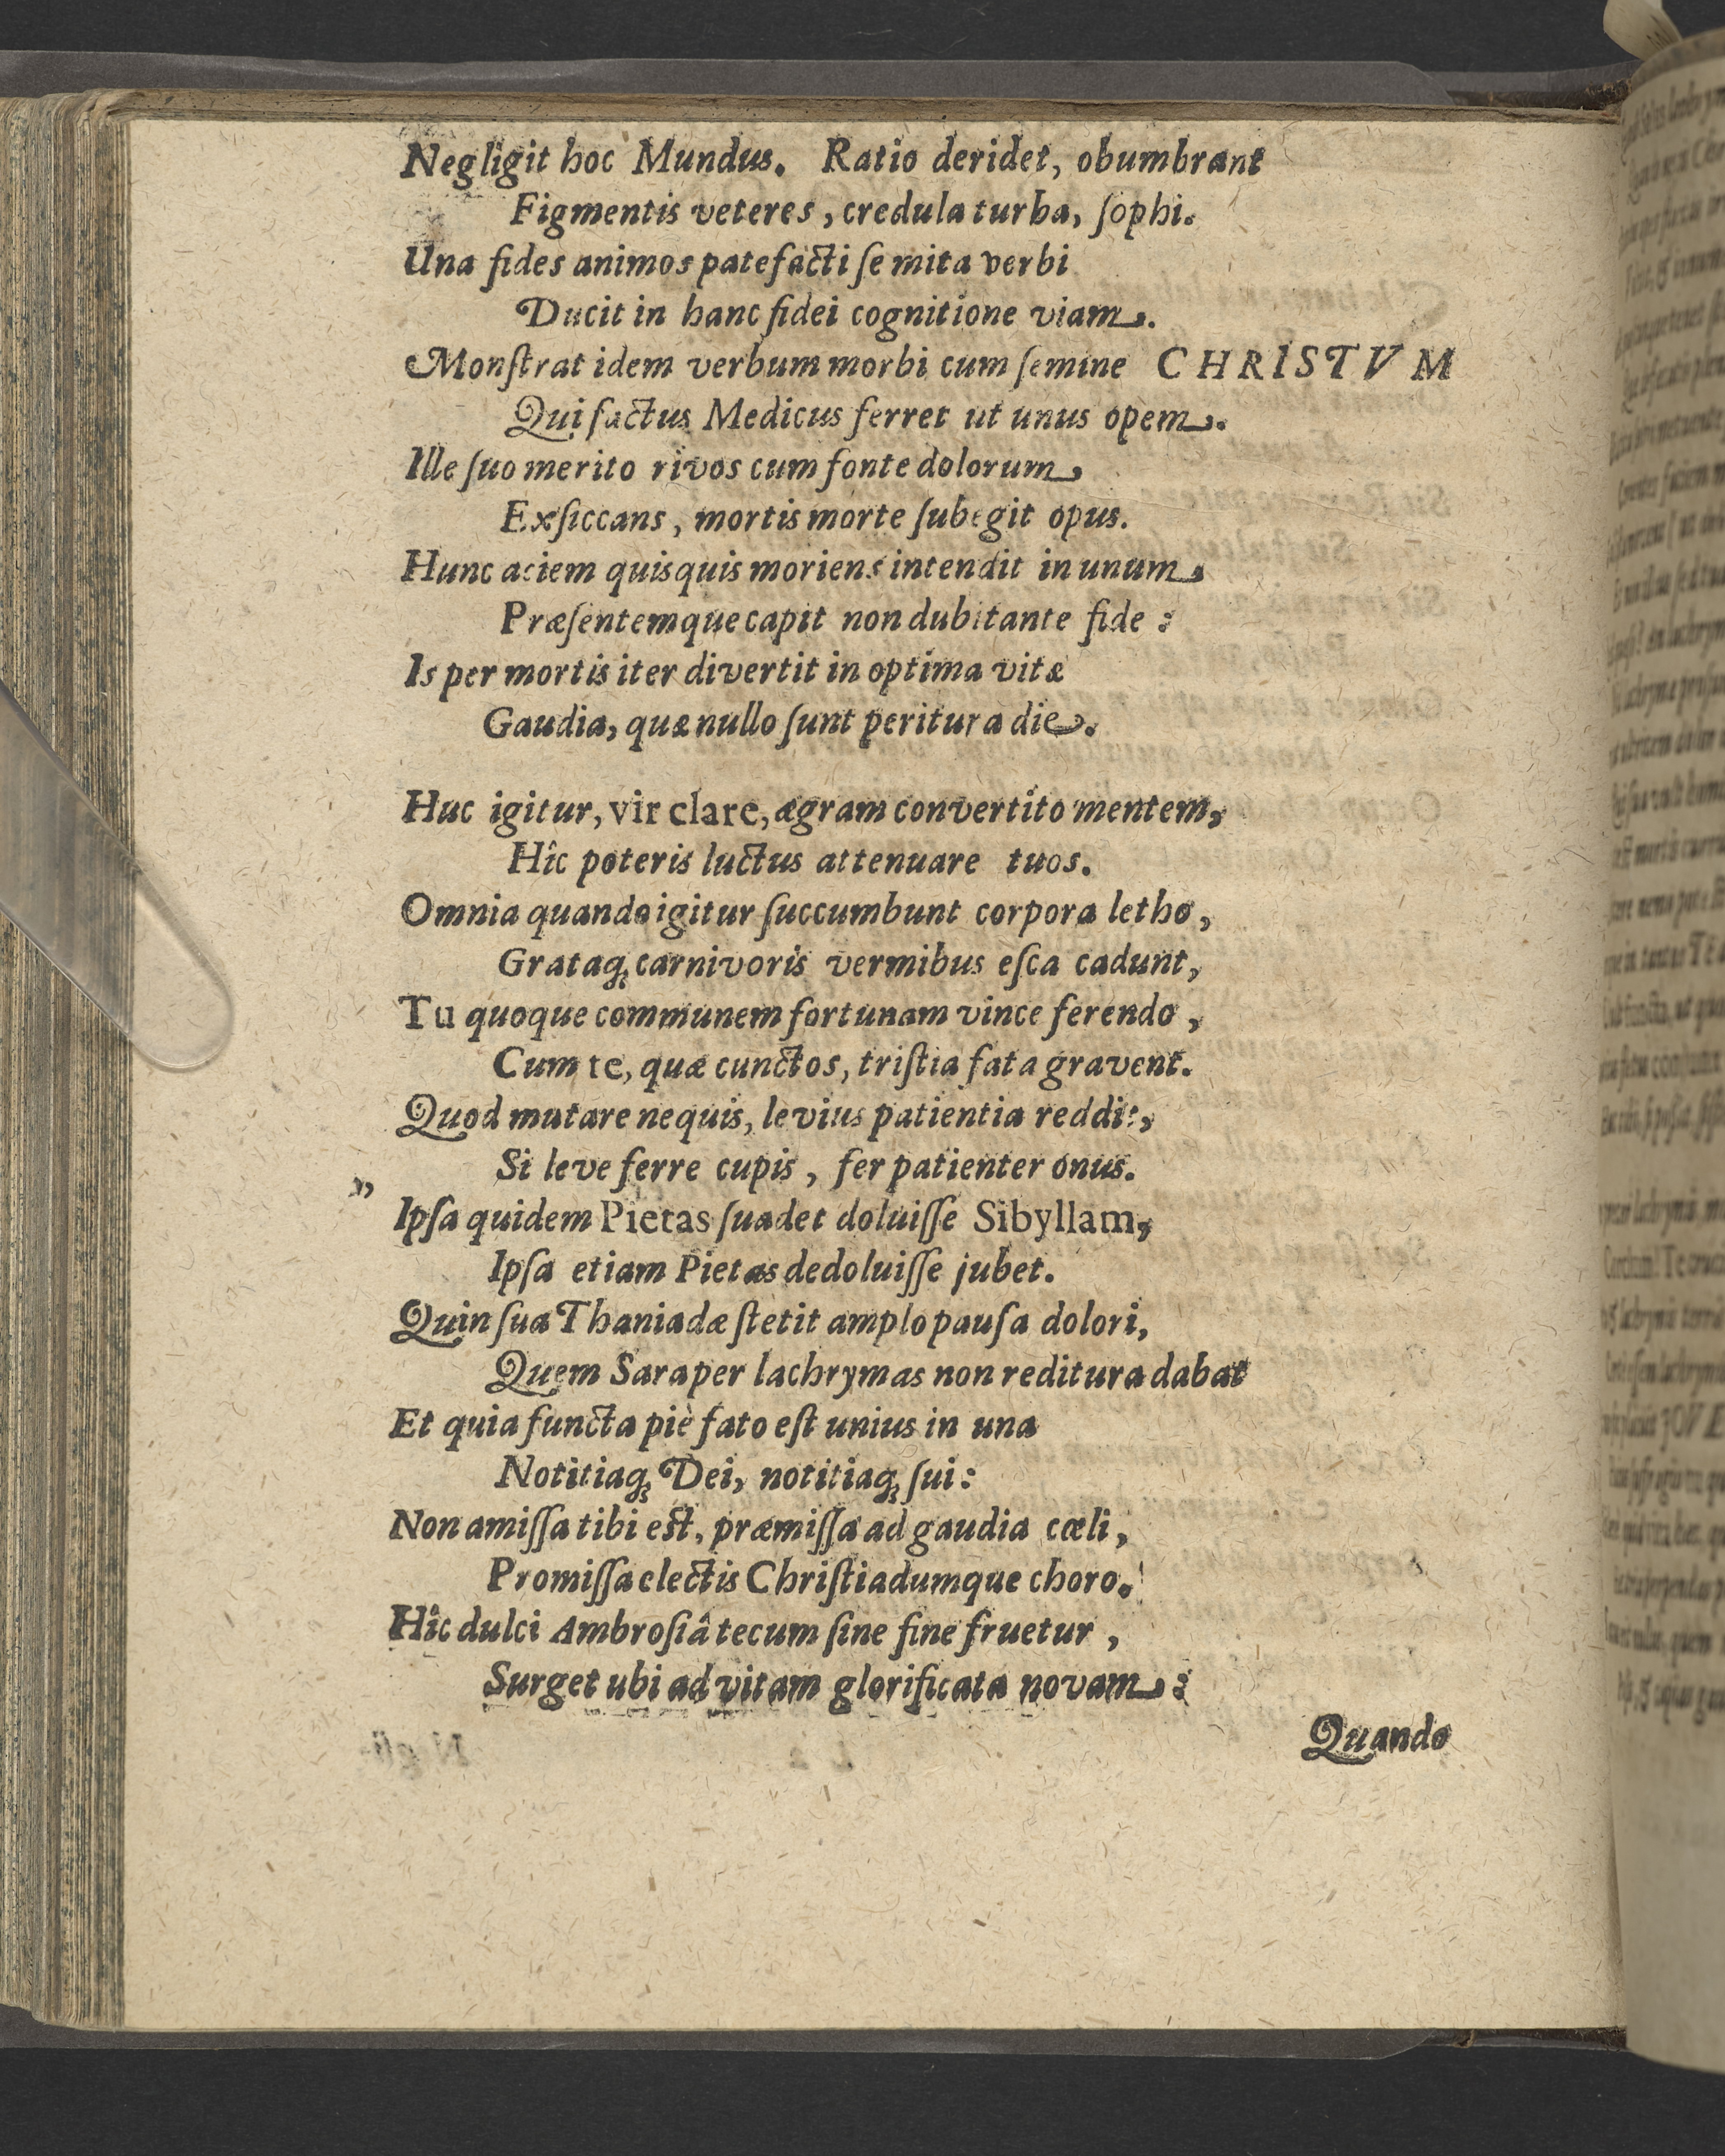 Negligit hoc Mundus. Ratio deridet, obumbrant
Figmentis veteres, credula turba, ſophi.
Una fides animos patefacti ſemita verbi
Ducit in hanc fidei cognitione viam.
Monſtrat idem verbum morbi cum ſemine CHRISTVM
Qui factus Medicus ferret ut unus opem.
Ille ſuo merito rivos cum fonte dolorum,
Exſiccans, mortis morte ſubegit opus.
Hunc aciem quisquis moriens intendit in unum,
Præſentemque capit non dubitante fide:
Is per mortis iter divertit in optima vitæ
Gaudia, quæ nullo ſunt peritura die.
Huc igitur, vir clare, ægram convertito mentem,
Hîc poteris luctus attenuare tuos.
Omnia quando igitur ſuccumbunt corpora letho,
Grataq́; carnivoris vermibus eſca cadunt,
Tu quoque communem fortunam vince ferendo,
Cum te, quæ cunctos, triſtia fata gravent.
Quod mutare nequis, levius patientia reddit,
Si leve ferre cupis, fer patienter onus.
„ Ipſa quidem Pietas ſuadet doluiſſe Sibyllam,
Ipſa etiam Pietas dedoluiſſe jubet.
Quin ſua Thaniadæ ſtetit amplo pauſa dolori,
Quem Sara per lachrymas non reditura dabat
Et quia functa piè fato eſt unius in una
Notitiaq́; Dei, notitiaq́; ſui:
Non amiſſa tibi eſt, præmiſſa ad gaudia cœli,
Promiſſa electis Chriſtiadumque choro.
Hîc dulci Ambroſiâ tecum ſine fine fruetur,
Surget ubi ad vitam glorificata novam:
Quando